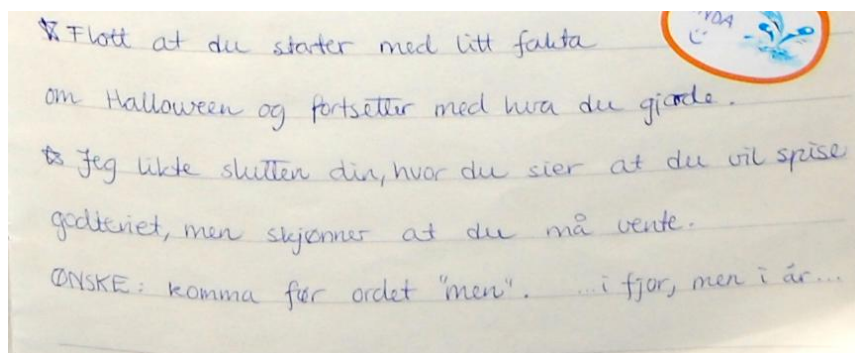 NDA
☆ Flott at du starter med litt fakta
om Halloween og fortsetter med hva du gjorde.
☆ Jeg likte slutten din, hvor du sier at du vil spise
godteriet, men skjønner at du må vente.
ØNSKE: komma før ordet "men". ...i fjor, men i år...